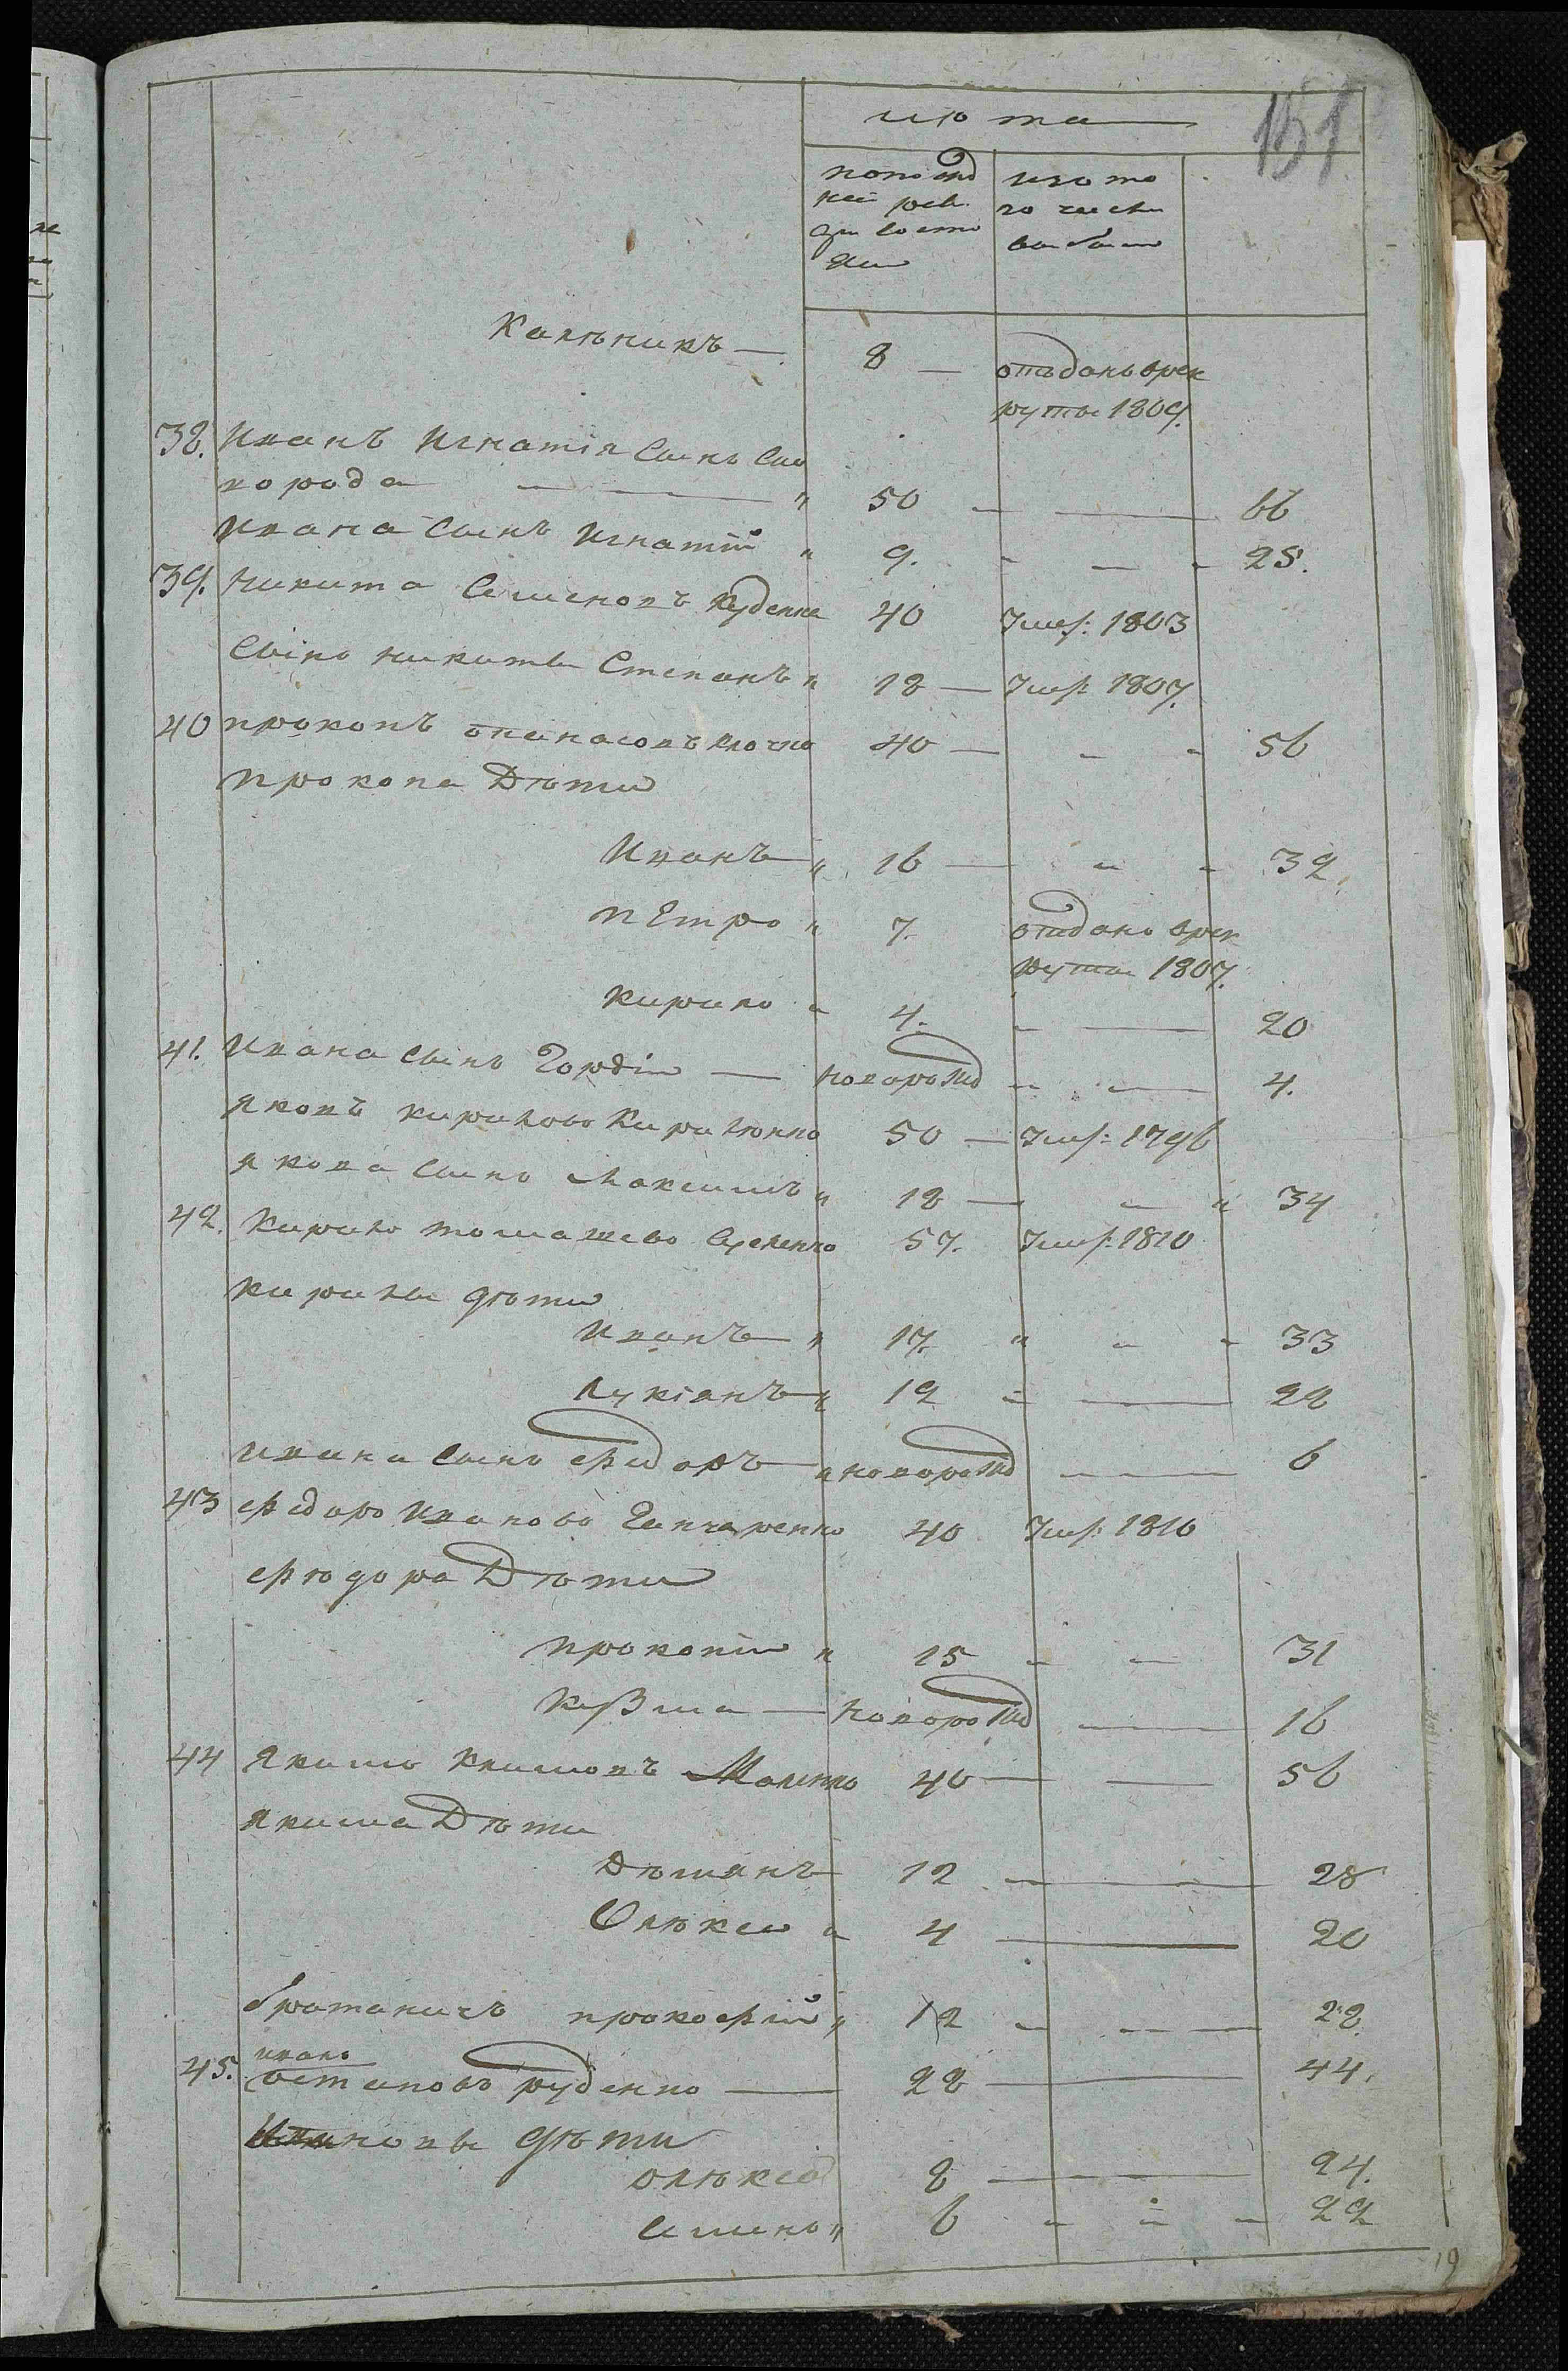 151
лѣта
попослѣд
ней реви
зіи состо
яли
изъ то
го числа
выбыло
Калѣникъ — 8 — отъданъ врек
руты 1809.
38. Иванъ Игнатія Сынъ Ско
ворода — " 50 — — 66
Ивана Сынъ Игнатій " 9. - — - 25.
39. Никита Семеновъ Руденко 40 Умер: 1803
Сынъ Никиты Степанъ " 18 — Умер: 1807.
40 Прокопъ Опанасовъ Клочко 40 — - - 56
Прокопа Дѣти
Иванъ " 16 — - - 32.
Петро " 7. отдано врек
руты 1807.
Кирило " 4. - — 20
41. Ивана сынъ Гордій — Новорожд - — 4.
Яковъ Кириловъ Кириленко 50 — Умер: 1796
Якова Сынъ Максимъ " 18 — - " 34
42. Кирило Томашевъ 57. Умер: 1810
Кирилы дѣти
Иванъ " 17. " - - 33
Лукіянъ " 12 - — 28
Ивана Сынъ Федоръ " новорожд — 6
43 Федоръ Ивановъ Ганчаренко 40 Умер: 1816
Фѣдора Дѣти
Прокопій " 15 - - 31
Кузма — Новорожд — 16
44 Якимъ Климовъ 40 — — 56
Якима Дѣти
Дѣмянъ 12 — 28
Олѣксѣй " 4 — 20
братаничъ Прокофій " 12 - — 28.
45. Иванъ
Остаповъ Руденко — 28 — 44.
дѣти
Олѣксѣй 8 — 24.
Семенъ " 6 - - - 22
19